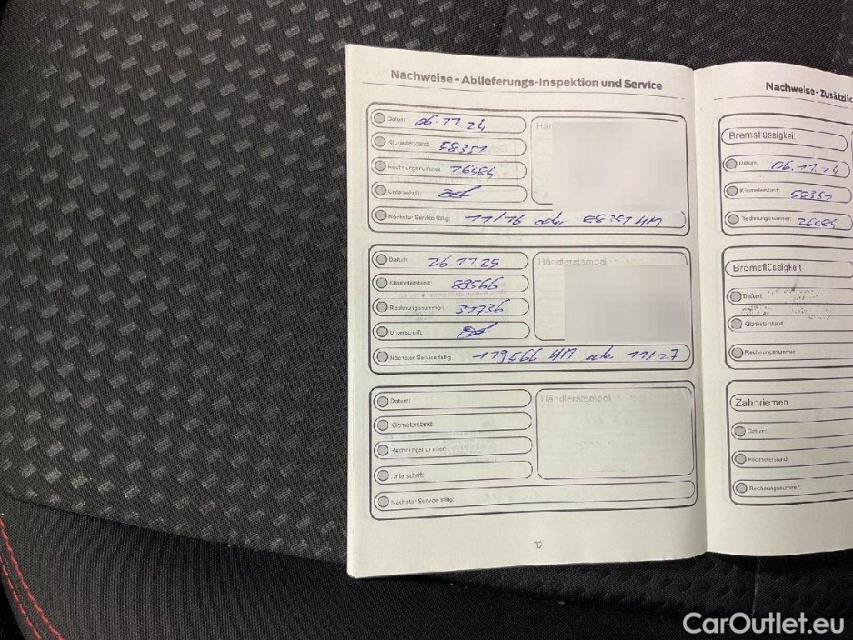 Nachweise - Ablieferungs-Inspektion und Service
Datum: 06.11 24
Kilometerstand: 58351
Rechnungsnummer: 26684
Unterschrift:
Nächster Service fällig: 11/26 oder 88351 KM
Datum: 26 11 25
Händlerstempel
Kilometerstand: 89566
Rechnungsnummer: 31736
Unterschrift:
Nächster Service fällig: 119566 KM oder 11/27
Datum:
Händlerstempel
Kilometerstand:
Rechnungsnummer:
Unterschrift:
Nächster Service fällig:
Nachweise - Zusätzlic
Bremsflüssigkeit
Datum: 06.11.24
Kilometerstand: 58351
Rechnungsnummer: 26684
Bremsflüssigkeit
Datum:
Kilometerstand:
Rechnungsnummer:
Zahnriemen
Datum:
Kilometerstand:
Rechnungsnummer:
CarOutlet.eu